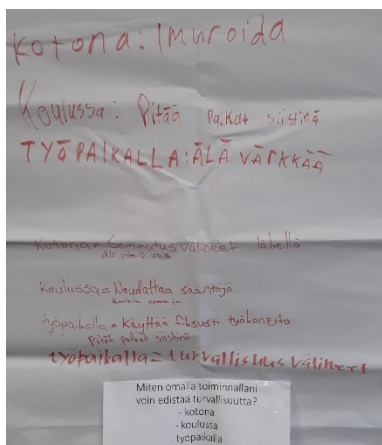 Kotona: Imuroida
Koulussa: Pitää paikat siistinä
TYÖPAIKALLA: ÄLÄ VÄRKKÄÄ
Kotona = Sammutus välineet lähellä
Koulussa = Noudattaa sääntöjä
työpaikalla = Käyttää fiksusti työkoneita
Pitää paikat siistinä
työpaikalla = turvallisuus välineet
Miten omalla toiminnallani
voin edistää turvallisuutta?
- kotona
- koulussa
- työpaikalla